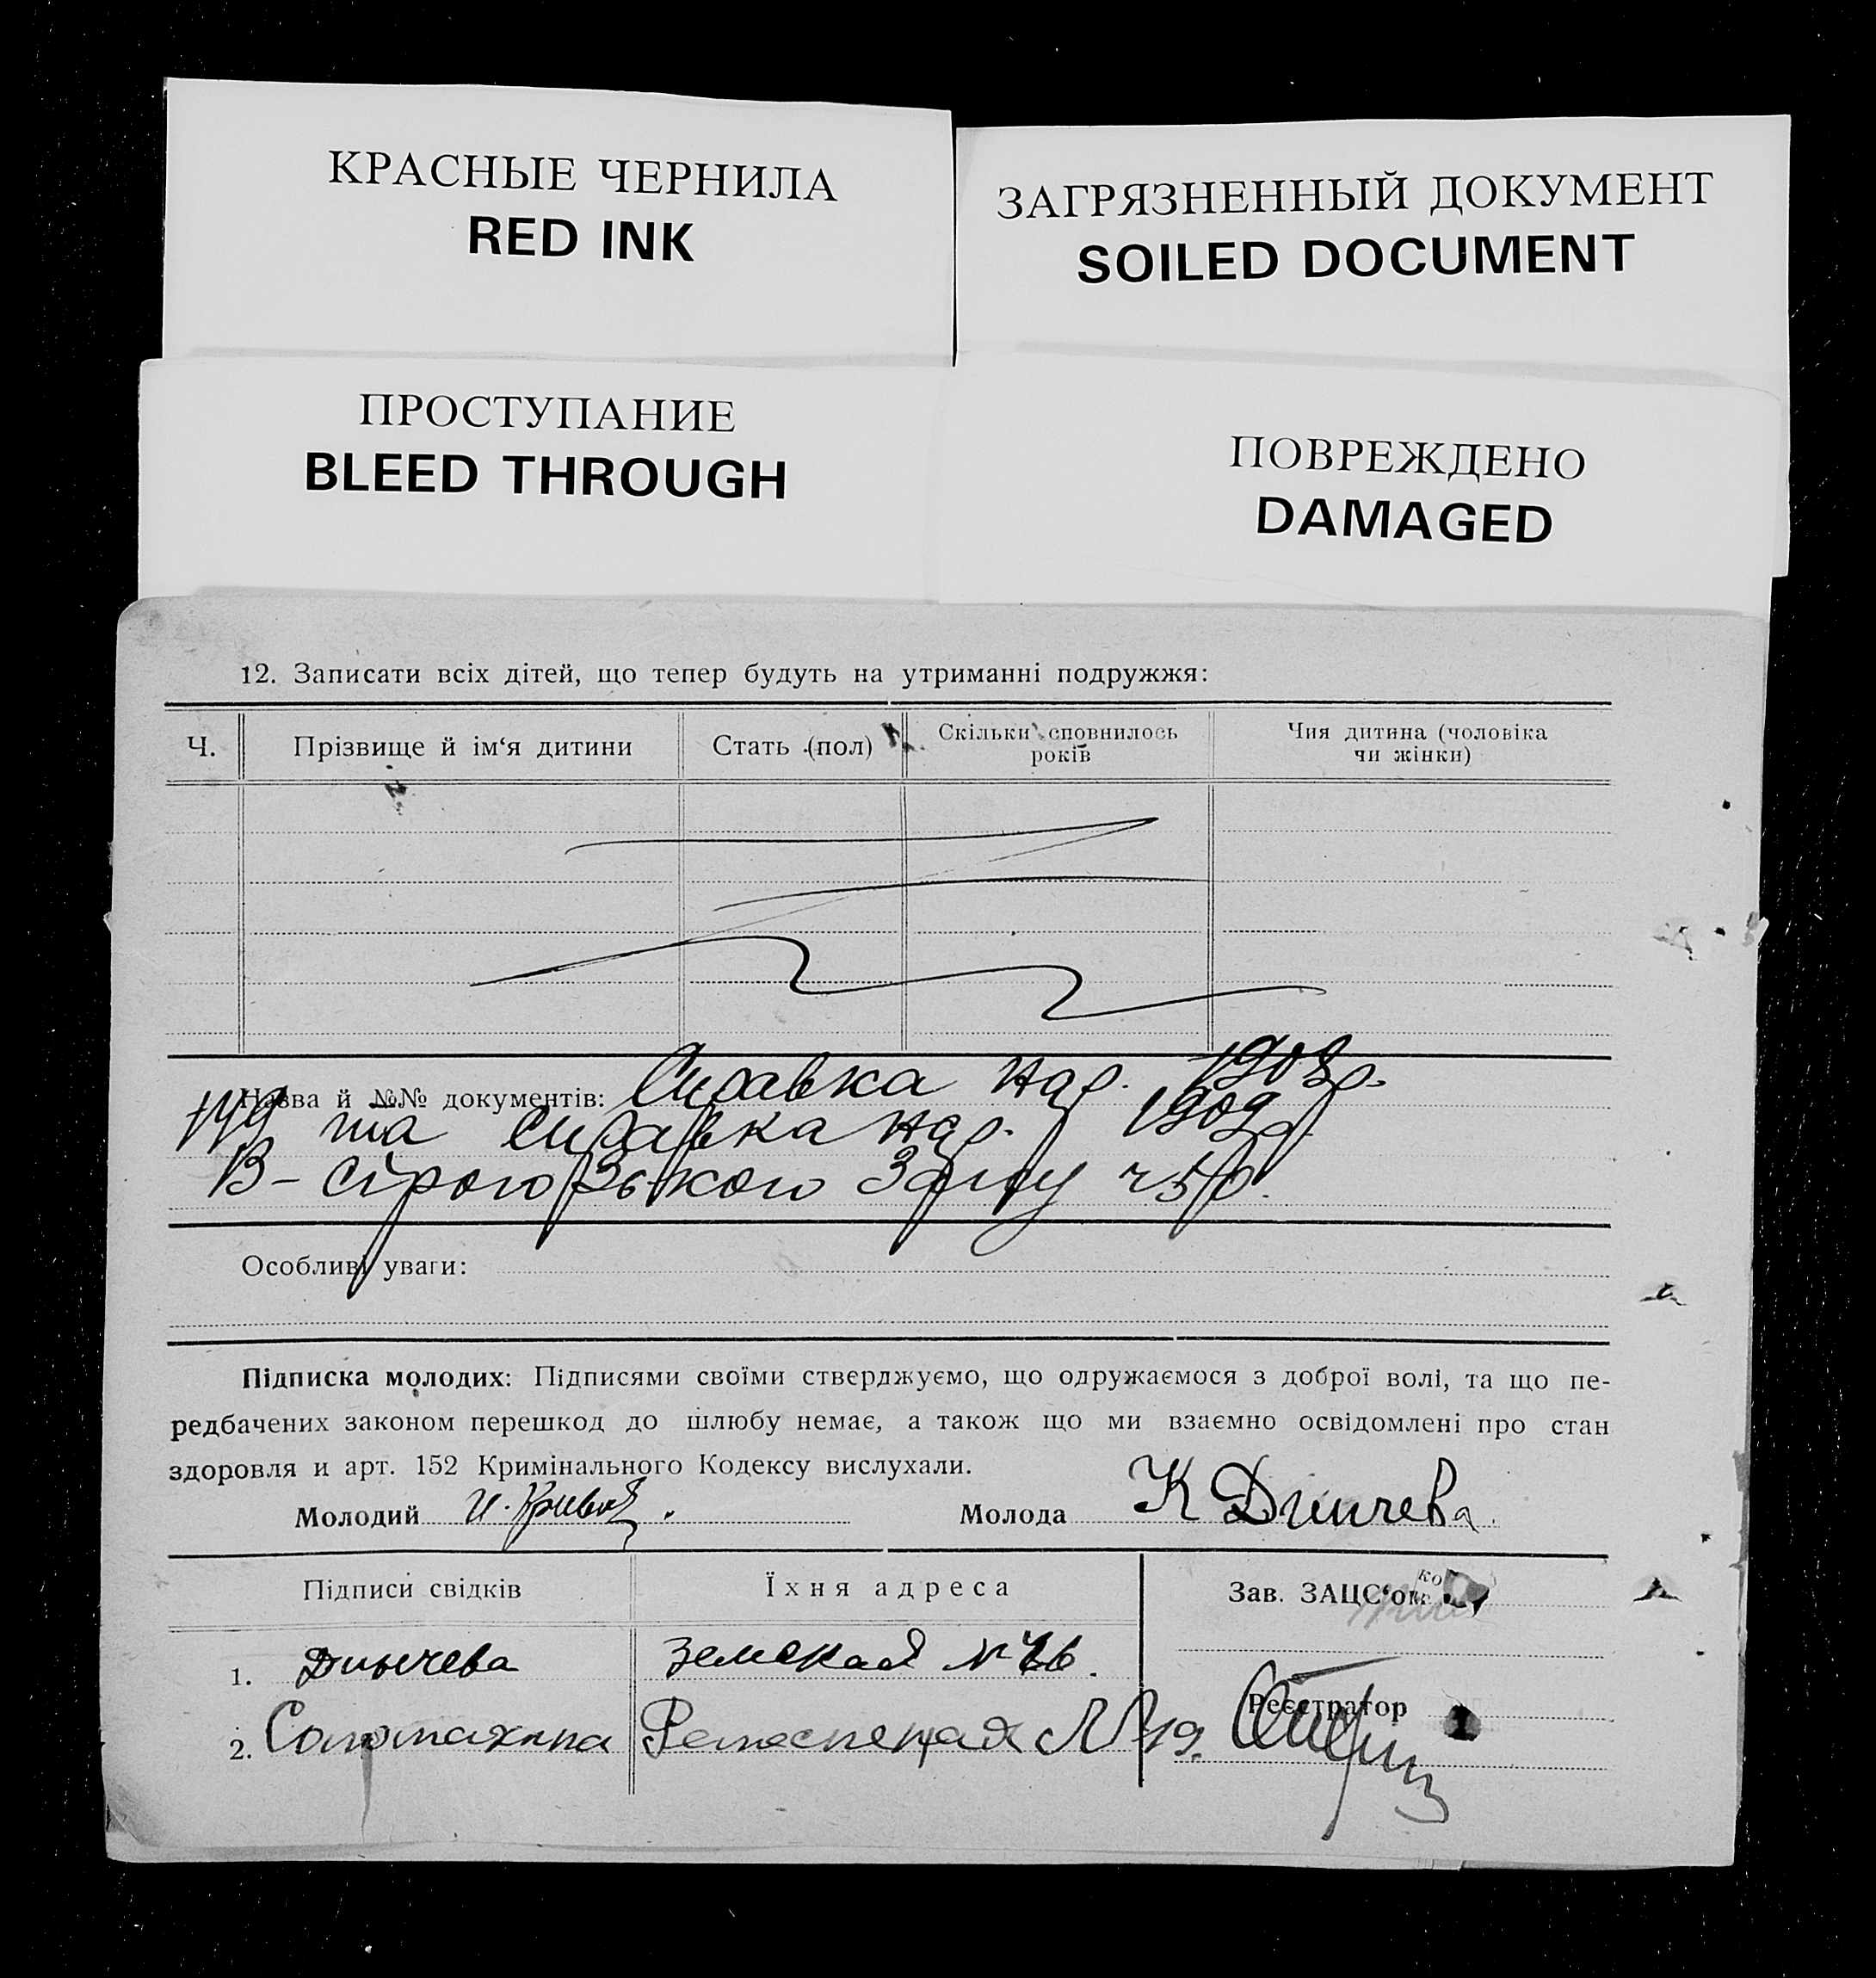 КРАСНЫЕ ЧЕРНИЛА
RED INK
ЗАГРЯЗНЕННЫЙ ДОКУМЕНТ
SOILED DOCUMENT
ПРОСТУПАНИЕ
BLEED THROUGH
ПОВРЕЖДЕНО
DAMAGED
12. Записати всіх дітей, що тепер будуть на утриманні подружжя:
Ч.
Прізвище й ім‘я дитини
Стать (пол)
Скільки сповнилось
років
Чия дитина (чоловіка
чи жінки)
Назва й №№ документів: Справка нар. 1908р.
149 та справка нар. 1909р.
В-
ч 50.
Особливі уваги:
Підписка молодих: Підписями своїми стверджуємо, що одружаємося з доброї волі, та що пе-
редбачених законом перешкод до шлюбу немає, а також що ми взаємно освідомлені про стан
здоровля и арт. 152 Кримінального Кодексу вислухали.
Молодий И.
Молода К Динчева.
Підписи свідків
Їхня адреса
Зав. ЗАЦС‘ом
1. Дынчева
Земская №
2.
№ 19.
Реєстратор